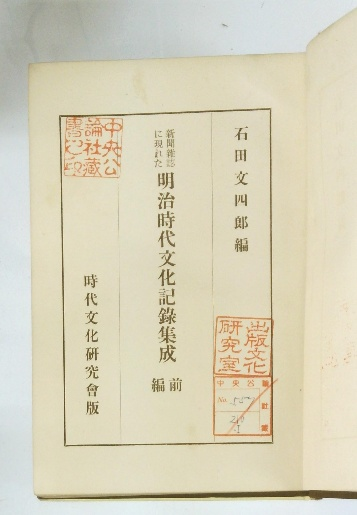 石田文四郎編
新聞雜誌
に現れた
明治時代文化記錄集成
前編
時代文化研究會版
中央公
論社藏
書之印
出版文化
研究室
中央公論社藏
No